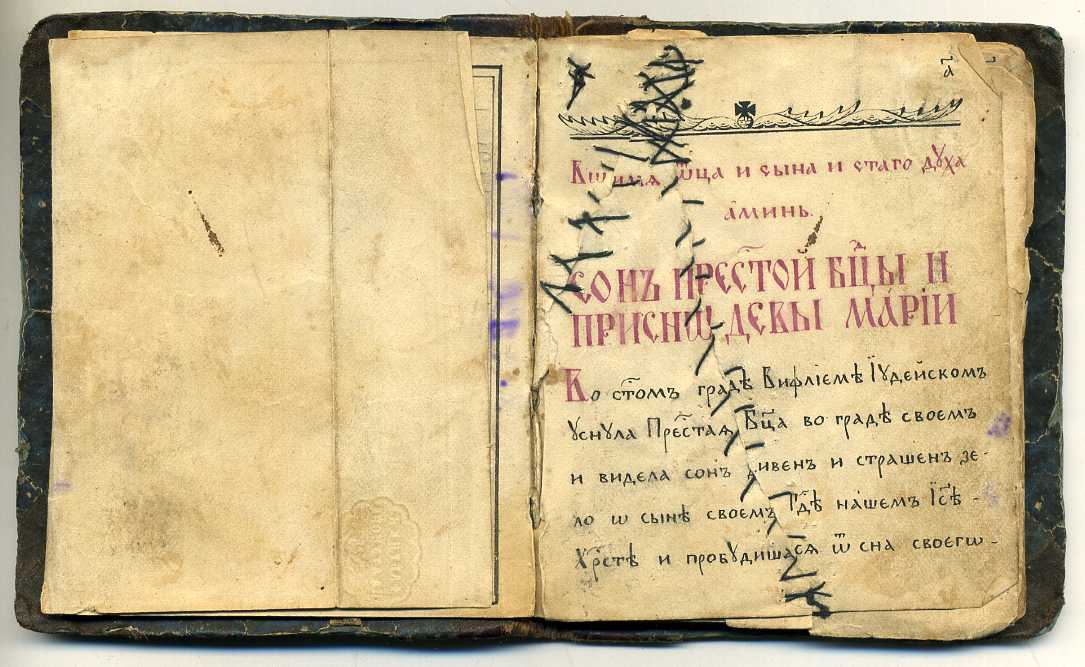 Вѡ имѧ ѿца и сына и стаго дꙋха
аминь.
СОНЪ ПРЕС҃ТОЙ БЦ҃Ы И
ПРИСНѠ ДЕВЫ МАРІИ
Во ст҃омъ градѣ Вифліемѣ Іѹдейскомъ
уснула Прес҃таѧ Бц҃а во градѣ своемъ
и видела сонъ дивенъ и страшенъ зе-
ло ѡ сынѣ своемъ Гд҃ѣ нашемъ Іс҃ѣ-
Хр҃стѣ и пробудишасѧ ѿ сна своегѡ-